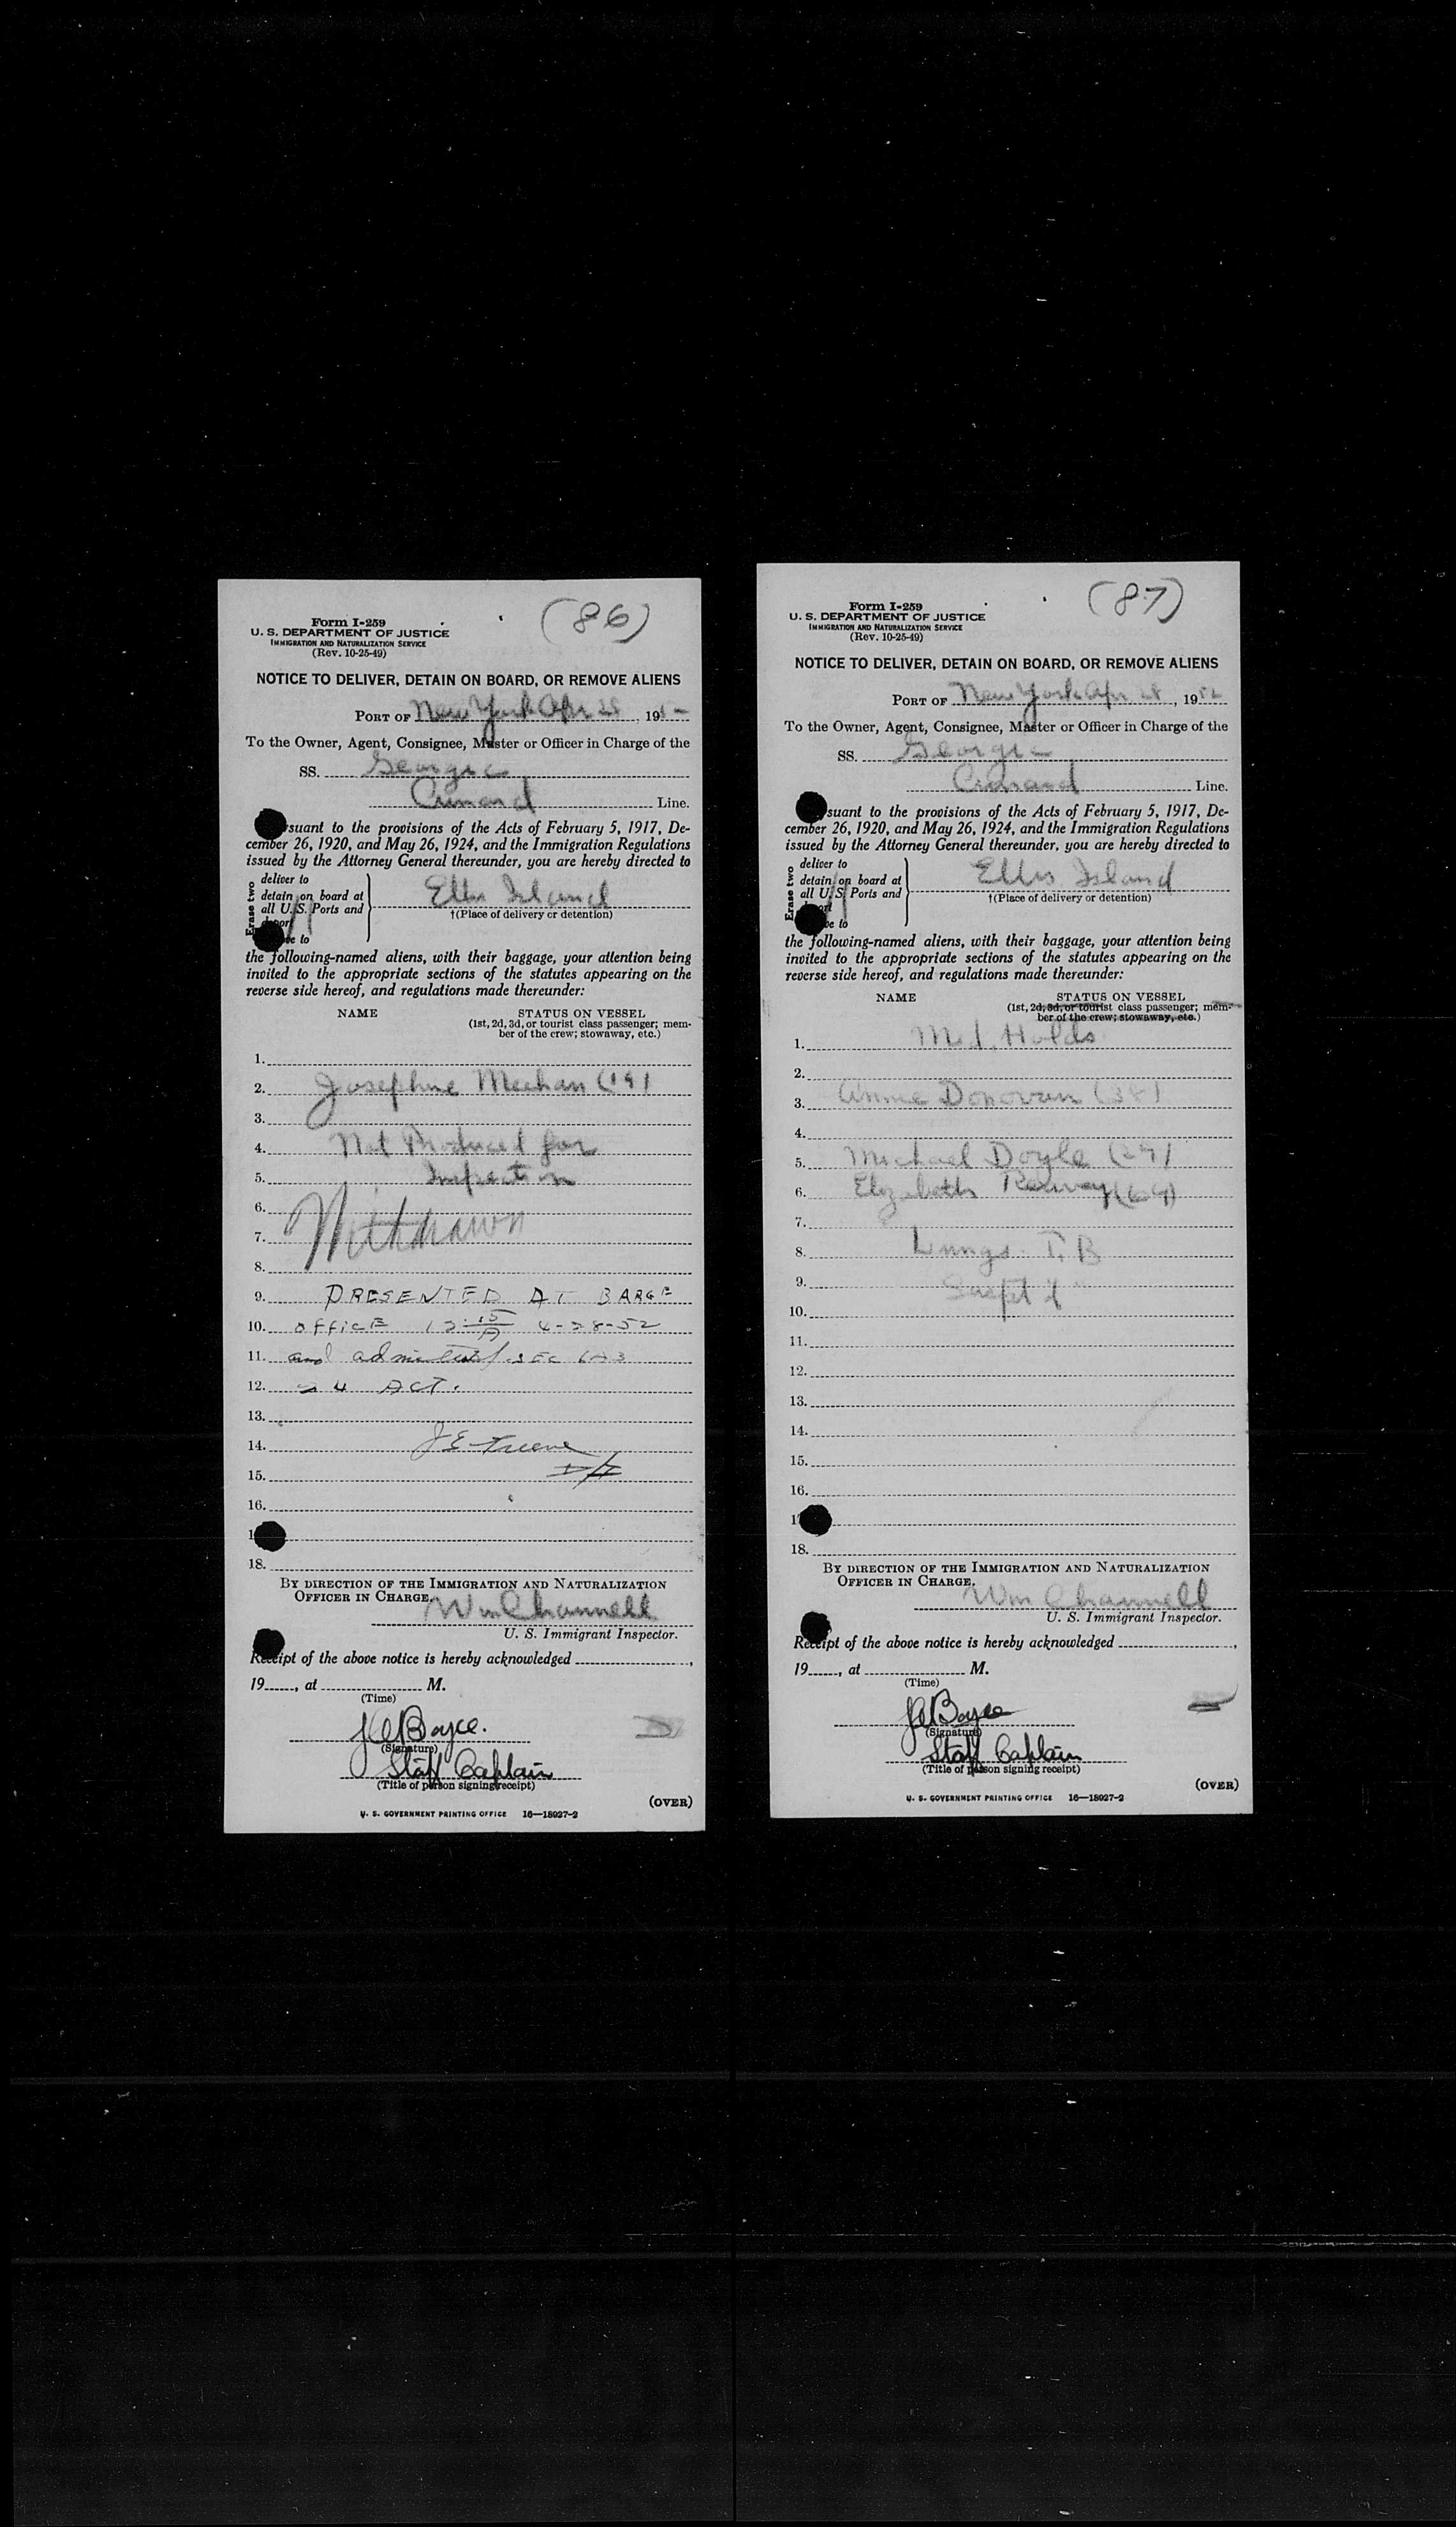 (86)
Form I-259
U. S. DEPARTMENT OF JUSTICE
IMMIGRATION AND NATURALIZATION SERVICE
(Rev. 10-25-49)
NOTICE TO DELIVER, DETAIN ON BOARD, OR REMOVE ALIENS
PORT OF New York Apr 28, 195
To the Owner, Agent, Consignee, Master or Officer in Charge of the
SS. Georgic
Cunard Line.
suant to the provisions of the Acts of February 5, 1917, De-
cember 26, 1920, and May 26, 1924, and the Immigration Regulations
issued by the Attorney General thereunder, you are hereby directed to
Erase two
deliver to
detain on board at
all U. S. Ports and
to
Ellis Island
†(Place of delivery or detention)
the following-named aliens, with their baggage, your attention being
invited to the appropriate sections of the statutes appearing on the
reverse side hereof, and regulations made thereunder:
NAME STATUS ON VESSEL
(1st, 2d, 3d, or tourist class passenger; mem-
ber of the crew; stowaway, etc.)
1.
2. Josephine Meehan (19)
3.
4. Not Produced for
5. Inspection
6.
7. Withdrawn
8.
9. PRESENTED AT BARGE
10. OFFICE 12 15/A 4-28-52
11. and admitted SEC
12. 24 ACT.
13.
14. J E
15.
16.
18.
BY DIRECTION OF THE IMMIGRATION AND NATURALIZATION
OFFICER IN CHARGE.
Wm Channell
U. S. Immigrant Inspector.
Receipt of the above notice is hereby acknowledged ,
19 , at M.
(Time)
J A Boyce.
(Signature)
Staff Captain
(Title of person signing receipt)
(OVER)
U. S. GOVERNMENT PRINTING OFFICE 16—18927-2
(87)
Form I-259
U. S. DEPARTMENT OF JUSTICE
IMMIGRATION AND NATURALIZATION SERVICE
(Rev. 10-25-49)
NOTICE TO DELIVER, DETAIN ON BOARD, OR REMOVE ALIENS
PORT OF New York Apr 28, 1952
To the Owner, Agent, Consignee, Master or Officer in Charge of the
SS. Georgic
Cunard Line.
suant to the provisions of the Acts of February 5, 1917, De-
cember 26, 1920, and May 26, 1924, and the Immigration Regulations
issued by the Attorney General thereunder, you are hereby directed to
Erase two
deliver to
detain on board at
all U. S. Ports and
to
Ellis Island
†(Place of delivery or detention)
the following-named aliens, with their baggage, your attention being
invited to the appropriate sections of the statutes appearing on the
reverse side hereof, and regulations made thereunder:
NAME STATUS ON VESSEL
(1st, 2d, 3d, or tourist class passenger; mem-
ber of the crew; stowaway, etc.)
1. Med. Holds
2.
3. Annie Donovan (38)
4.
5. Michael Doyle (29)
6. Elizabeth (64)
7.
8. Lungs. T. B
9.
10.
11.
12.
13.
14.
15.
16.
18.
BY DIRECTION OF THE IMMIGRATION AND NATURALIZATION
OFFICER IN CHARGE.
Wm Channell
U. S. Immigrant Inspector.
Receipt of the above notice is hereby acknowledged ,
19 , at M.
(Time)
J A Boyce
(Signature)
Staff Captain
(Title of person signing receipt)
(OVER)
U. S. GOVERNMENT PRINTING OFFICE 16—18927-2